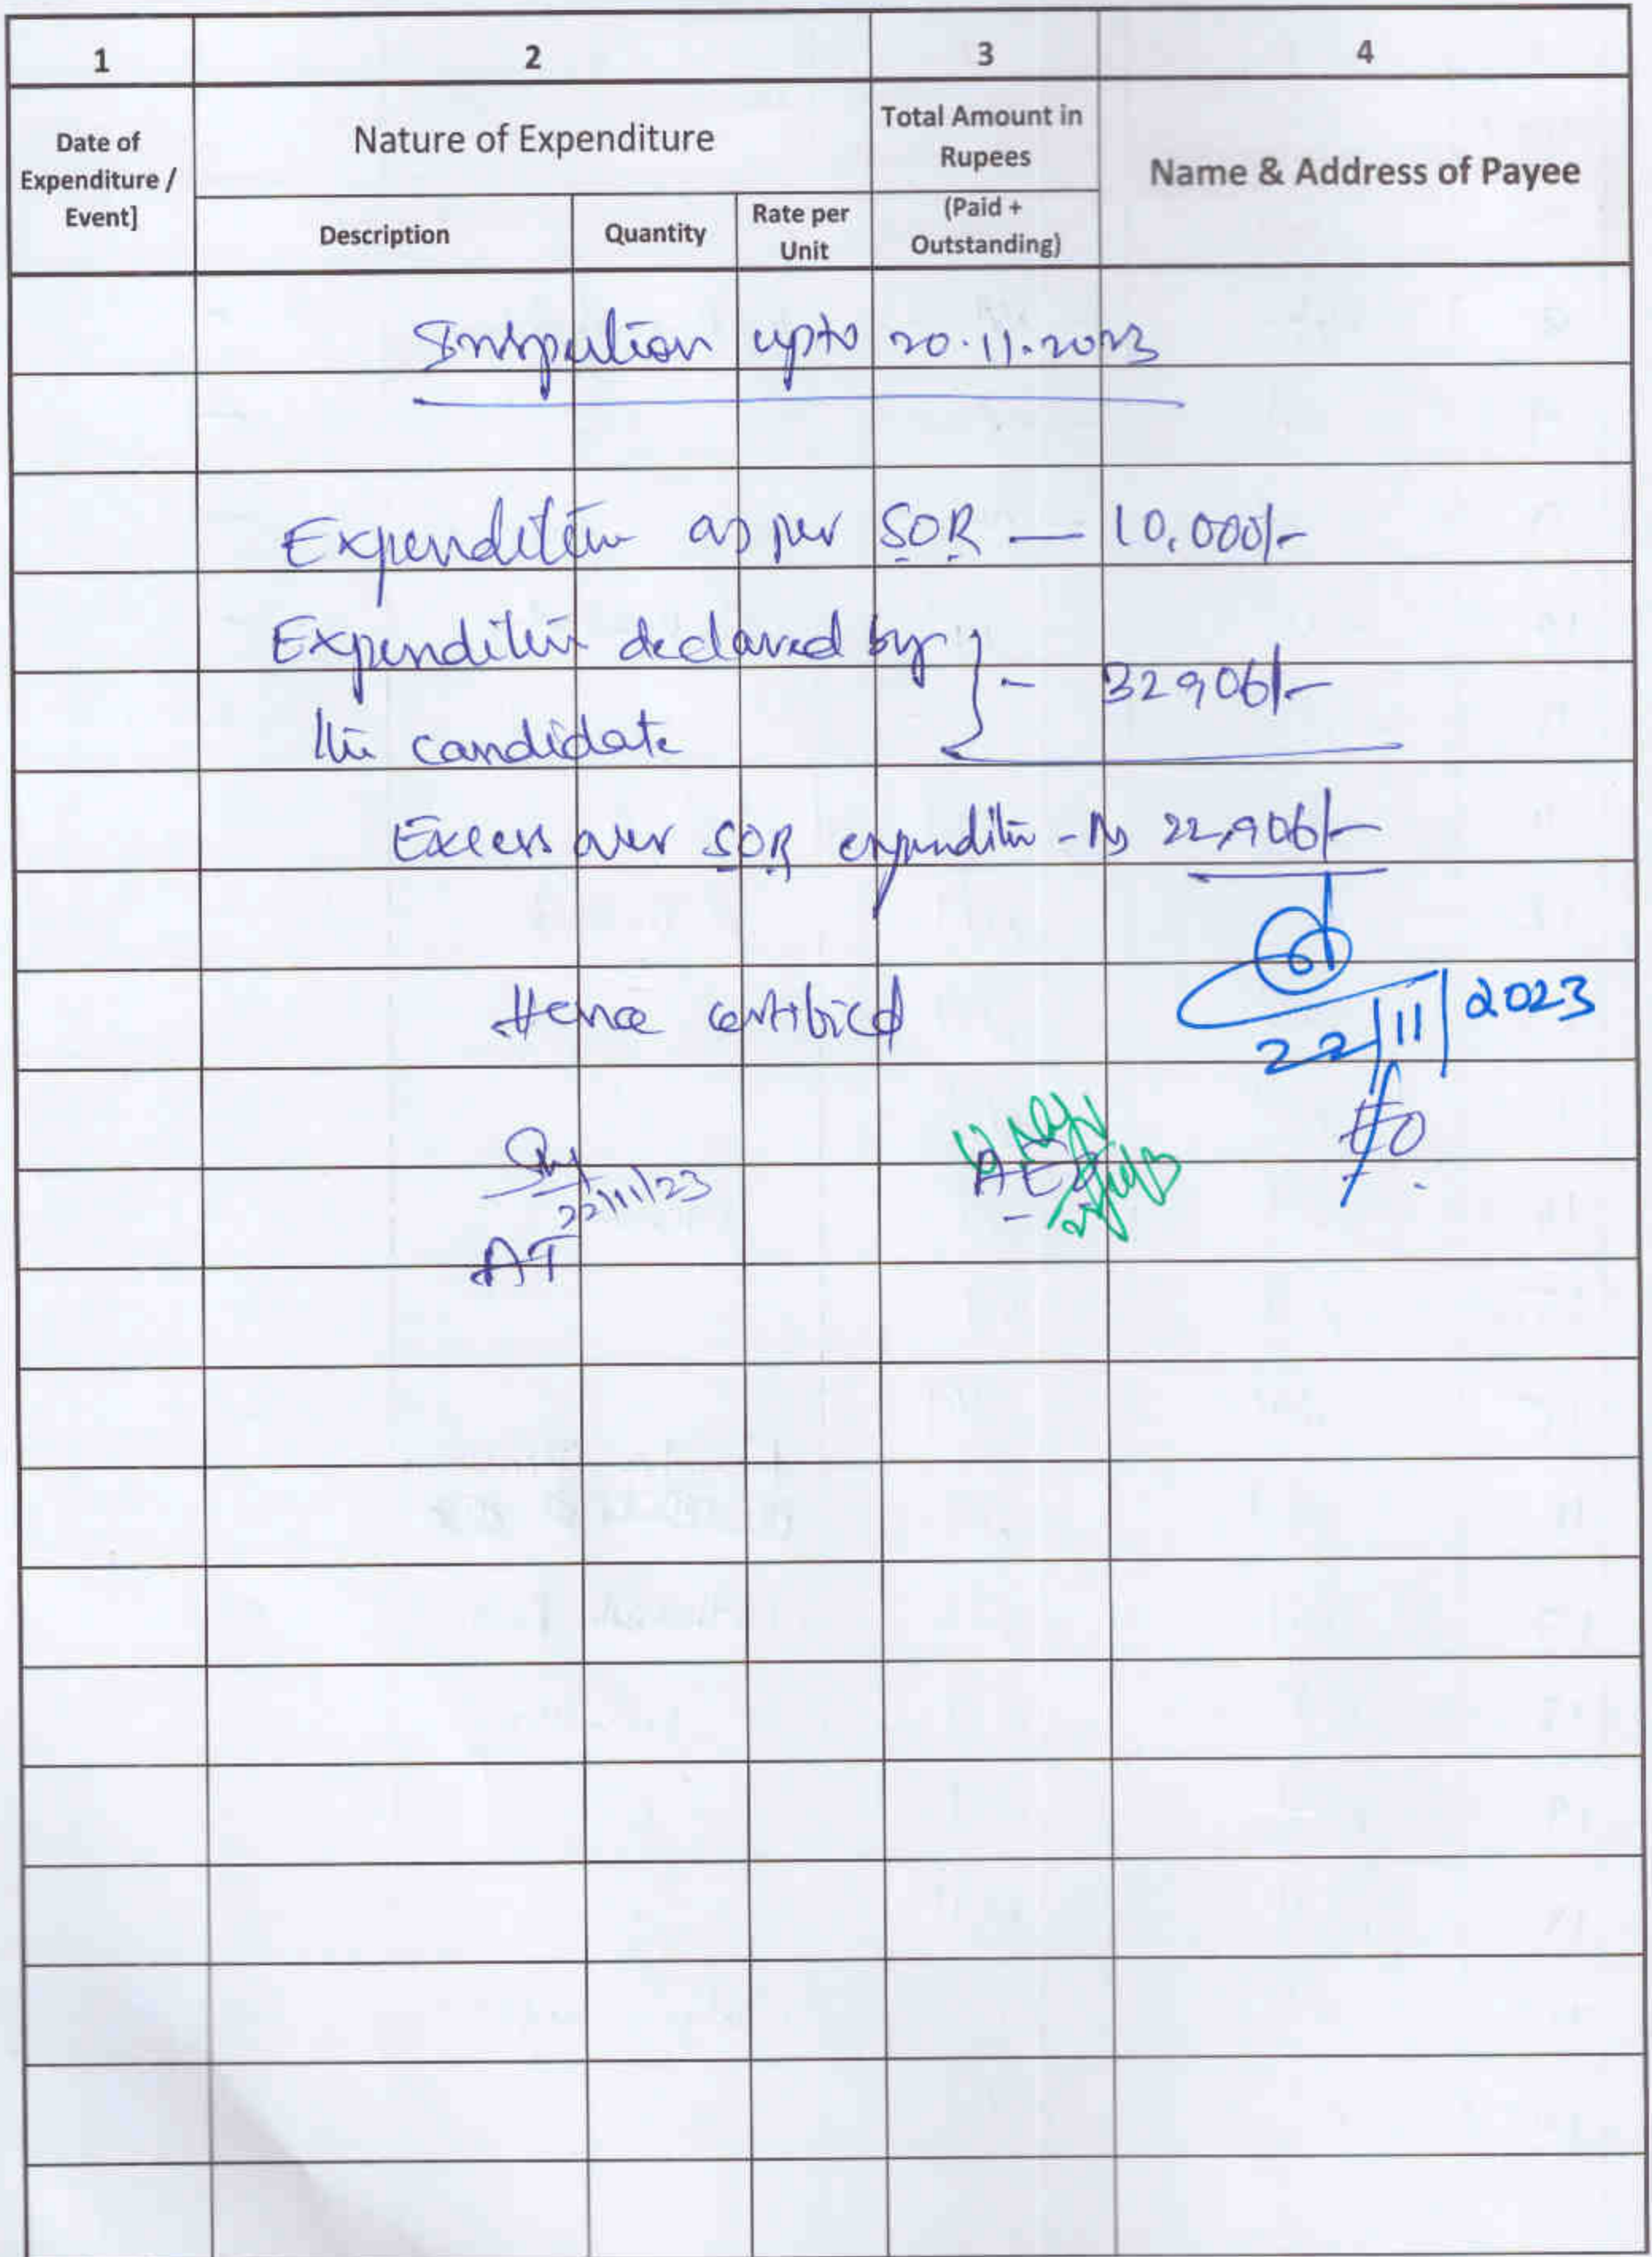 1 2 3 4
Date of Expenditure / Event]
Nature of Expenditure
Total Amount in Rupees
(Paid + Outstanding)
Name & Address of Payee
Description Quantity Rate per Unit
Inspection upto 20.11.2023
Expenditure as per SOR — 10,000/-
Expenditure declared by
the candidate } - 32906/-
Excess over SOR expenditure - Rs 22,906/-
Hence certified
22/11/2023
EO.
22/11/23
AEO
AT